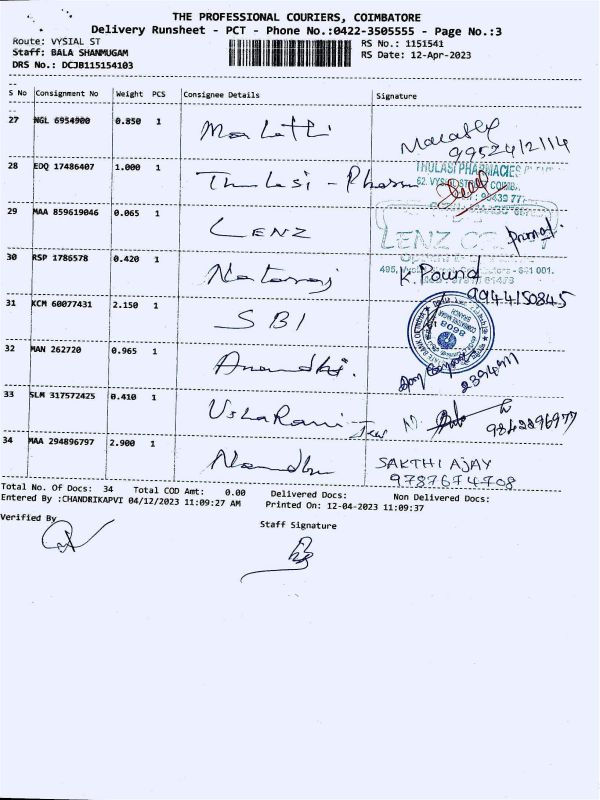 THE PROFESSIONAL COURIERS, COIMBATORE
Delivery Runsheet - PCT - Phone No.:0422-3505555 - Page No.:3
Route: VYSIAL ST RS No.: 1151541
Staff: BALA SHANMUGAM RS Date: 12-Apr-2023
DRS No.: DCJB115154103
S No Consignment No Weight PCS Consignee Details Signature
27 NGL 6954900 0.850 1 Malathi
9952412114
28 EDQ 17486407 1.000 1 Thulasi - Pharm THULASI PHARMACIES
62, VYSIAL ST
29 MAA 859619046 0.065 1 LENZ
LENZ
30 RSP 1786578 0.420 1 Nataraj K. Pound
9944150845
31 KCM 60077431 2.150 1 SBI
8098
32 MAN 262720 0.965 1 Anandhi
33 SLM 317572425 0.410 1 Usha Rani
9842296977
34 MAA 294896797 2.900 1 Nandhu SAKTHI AJAY
9787674708
Total No. Of Docs: 34 Total COD Amt: 0.00 Delivered Docs: Non Delivered Docs:
Entered By :CHANDRIKAPVI 04/12/2023 11:09:27 AM Printed On: 12-04-2023 11:09:37
Verified By Staff Signature